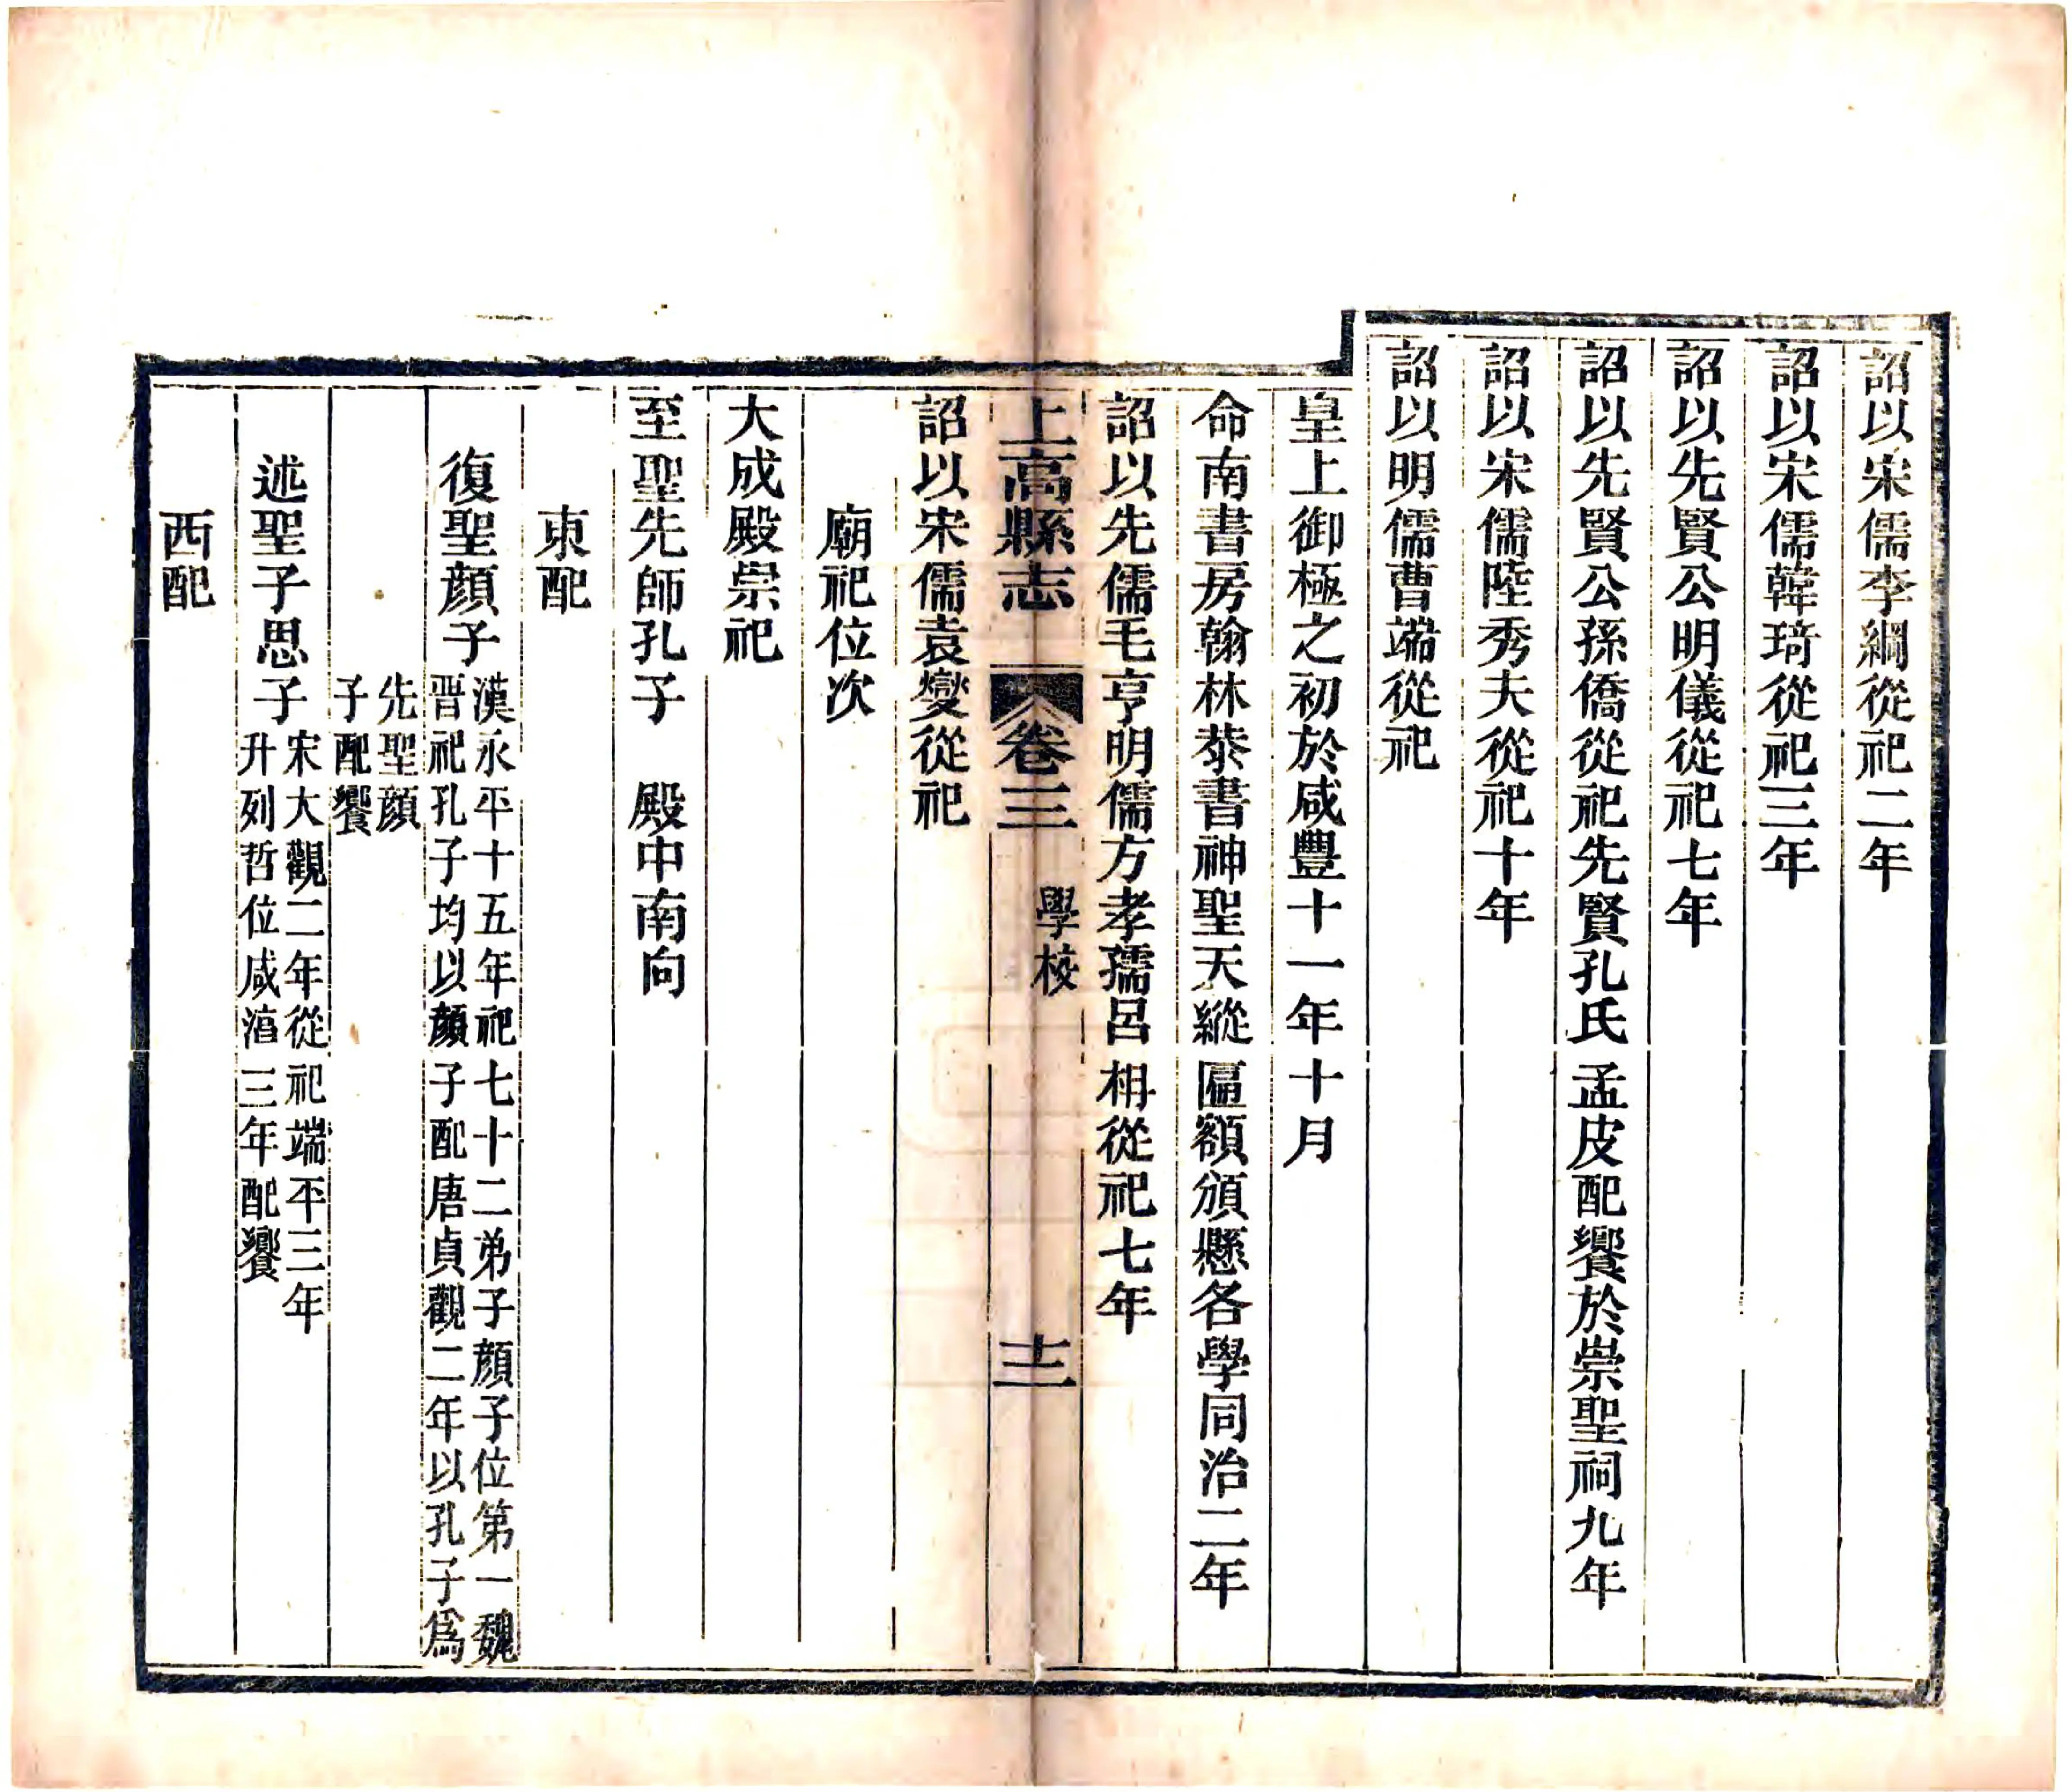 詔以宋儒李綱從祀二年
詔以宋儒韓琦從祀三年
詔以先賢公明儀從祀七年
詔以先賢公孫僑從祀先賢孔氏孟皮配饗於崇聖祠九年
詔以宋儒陸秀夫從祀十年
詔以明儒曹端從祀
皇上御極之初於咸豐十一年十月
命南書房翰林恭書神聖天縱匾額頒懸各學同治二年
詔以先儒毛亨明儒方孝孺呂柟從祀七年
上高縣志
卷三
學校
十二
詔以宋儒袁燮從祀
廟祀位次
大成殿崇祀
至聖先師孔子 殿中南向
東配
復聖顏子
漢永平十五年祀七十二弟子顏子位第一魏
晋祀孔子均以顏子配唐貞觀二年以孔子爲
先聖顏
子配饗
述聖子思子
宋大觀二年從祀端平三年
升列哲位咸湻三年配饗
西配